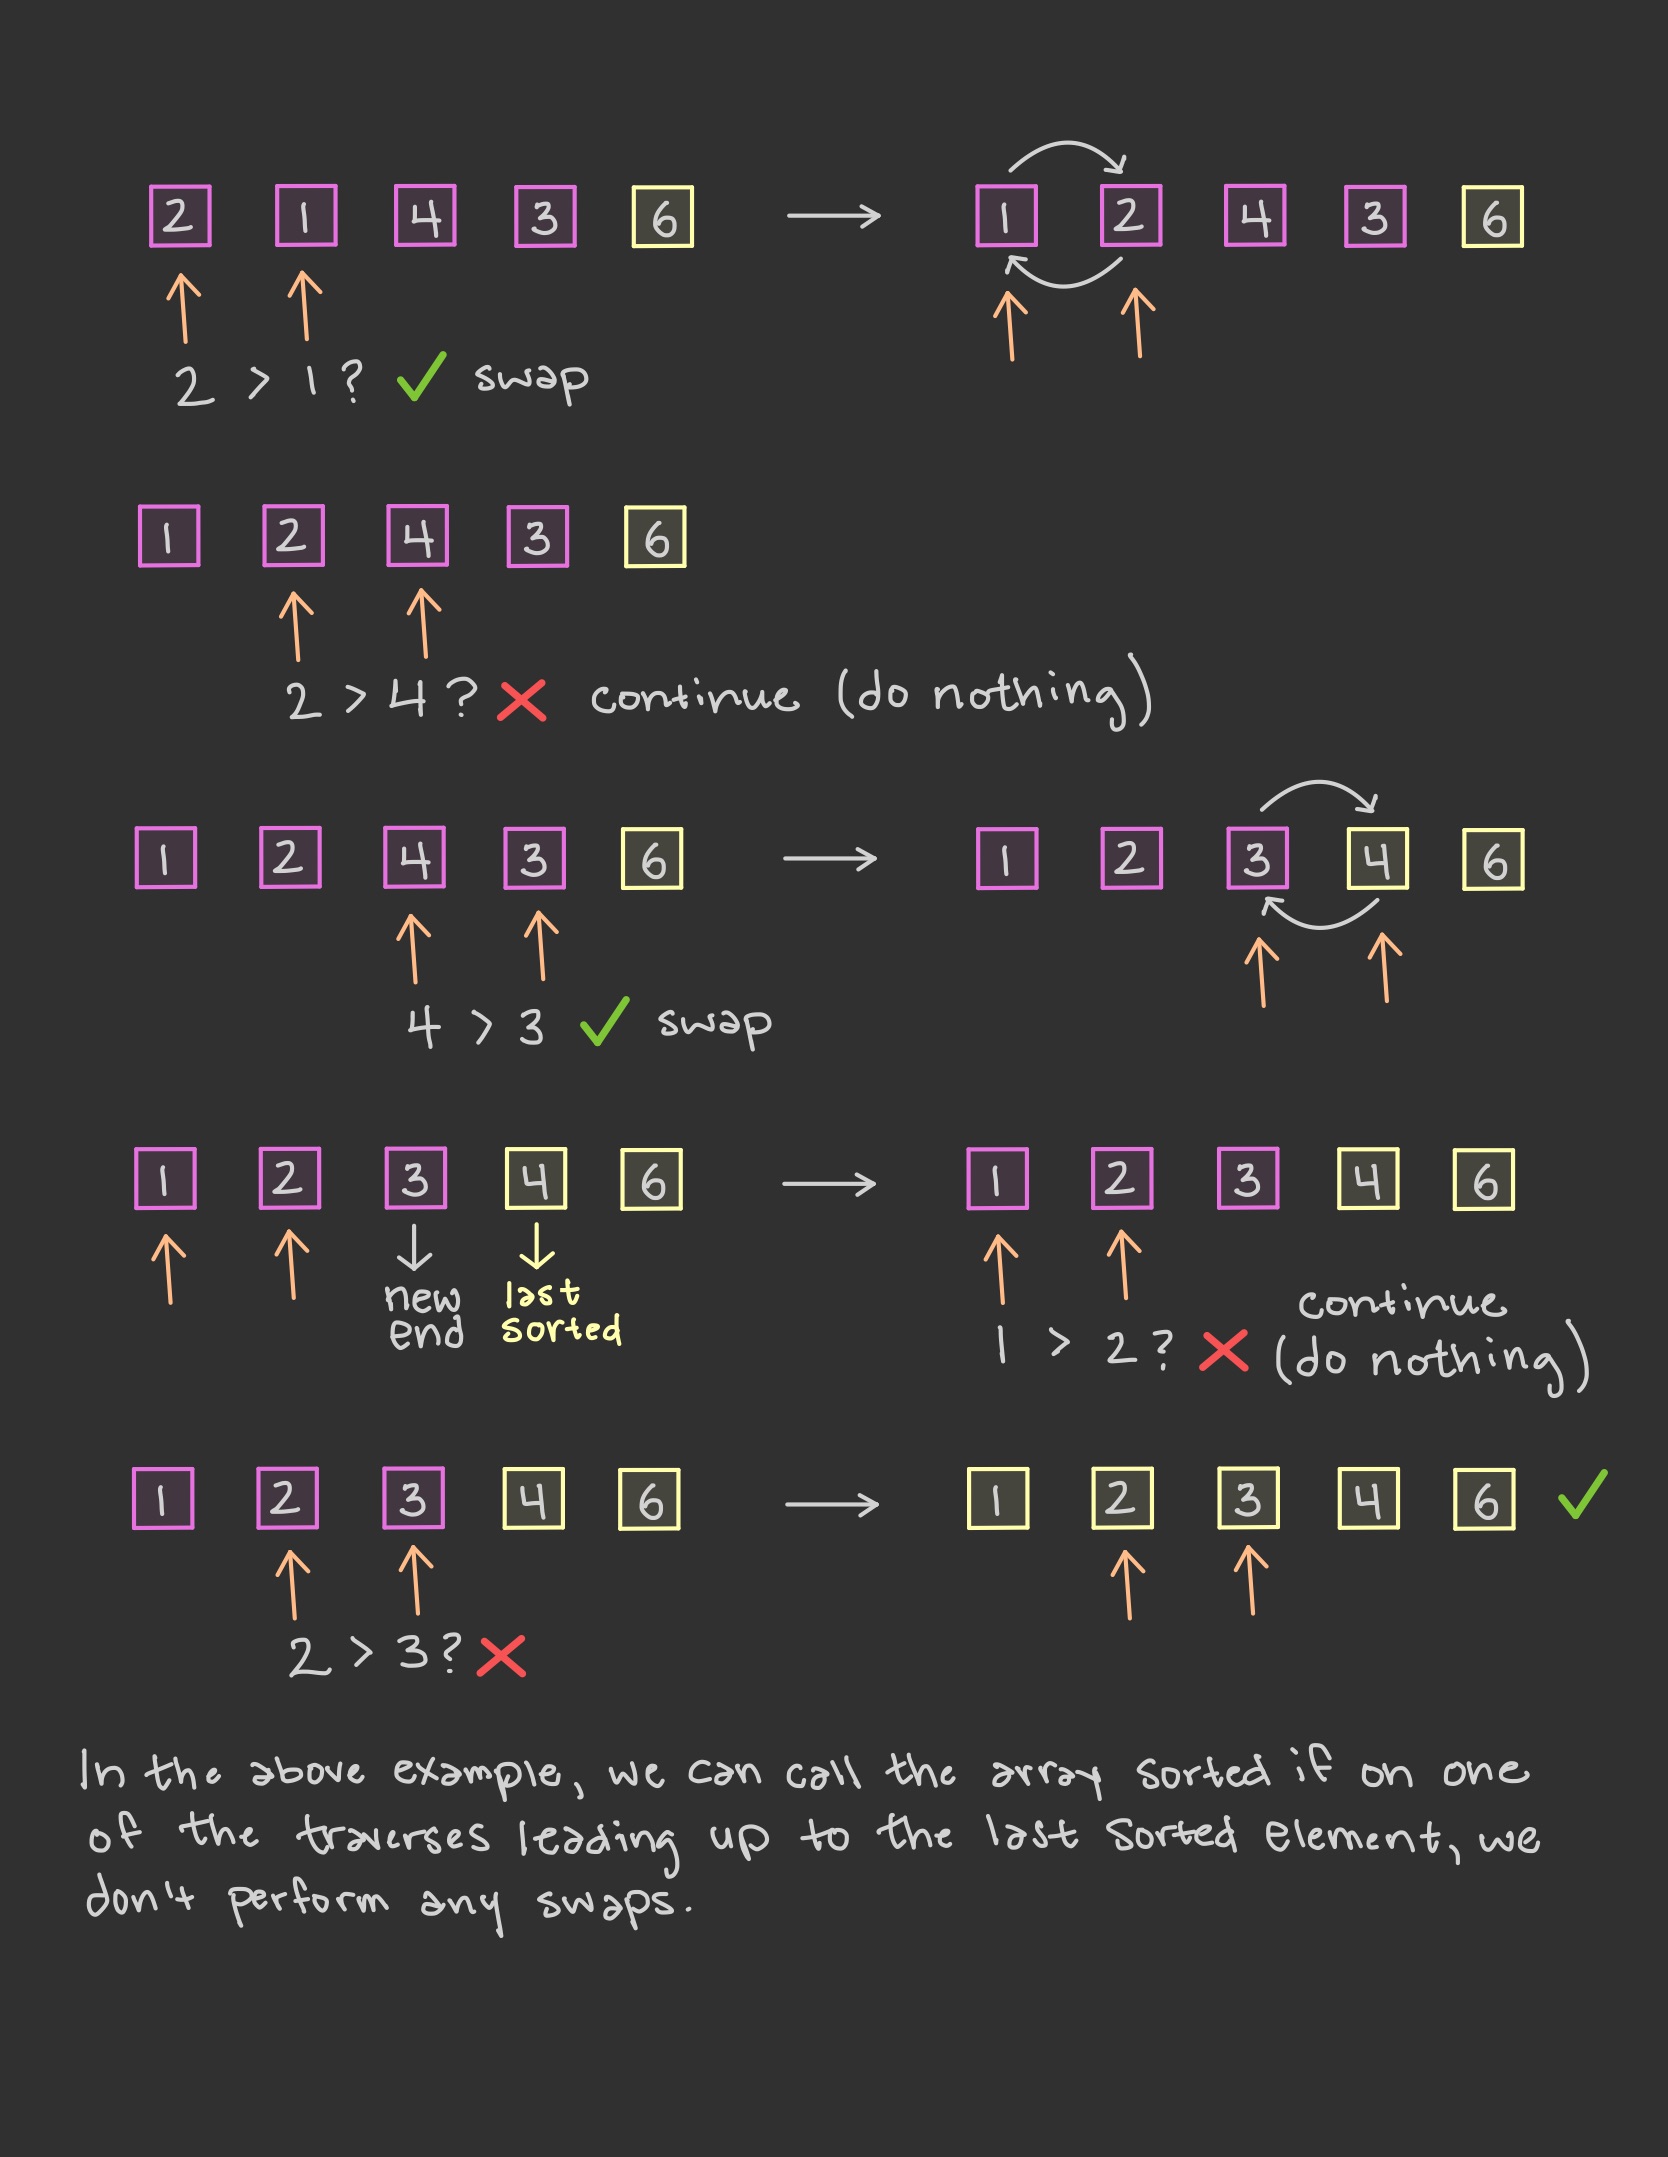 2 1 4 3 6 → 1 2 4 3 6
2 > 1 ? ✓ swap
1 2 4 3 6
2 > 4 ? ✗ continue (do nothing)
1 2 4 3 6 → 1 2 3 4 6
4 > 3 ✓ swap
1 2 3 4 6 → 1 2 3 4 6
new end
last sorted
1 > 2 ? ✗ continue (do nothing)
1 2 3 4 6 → 1 2 3 4 6 ✓
2 > 3 ? ✗
In the above example, we can call the array sorted if on one
of the traverses leading up to the last sorted element, we
don't perform any swaps.